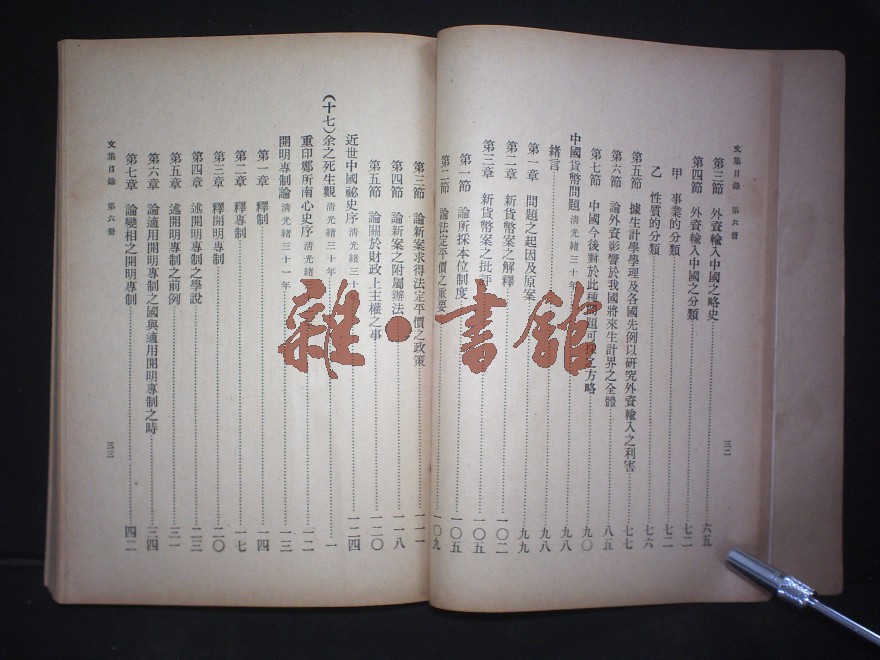 文集目錄 第六册
第三節 外資輸入中國之略史 六五
第四節 外資輸入中國之分類 七二
甲 事業的分類 七二
乙 性質的分類 七六
第五節 據生計學學理及各國先例以研究外資輸入之利害 七七
第六節 論外資影響於我國將來生計界之全體 八五
第七節 中國今後對於此種問題可採之方略 九〇
中國貨幣問題 清光緒三十年 九八
緒言 九八
第一章 問題之起因及原案 九九
第二章 新貨幣案之解釋 一〇二
第三章 新貨幣案之批評 一〇五
第一節 論所採本位制度 一〇五
第二節 論法定平價之重要 一〇九
三二
第三節 論新案求得法定平價之政策 一一一
第四節 論新案之附屬辦法 一一八
第五節 論關於財政上主權之事 一二〇
近世中國祕史序 清光緒三十年 一二四
(十七)余之死生觀 清光緒三十年 一
重印鄭所南心史序 清光緒三 一二
開明專制論 清光緒三十一年 一三
第一章 釋制 一四
第二章 釋專制 一七
第三章 釋開明專制 二〇
第四章 述開明專制之學說 二三
第五章 述開明專制之前例 三一
第六章 論適用開明專制之國與適用開明專制之時 三四
第七章 論變相之開明專制 四二
文集目錄 第六册
三三
雜·書館